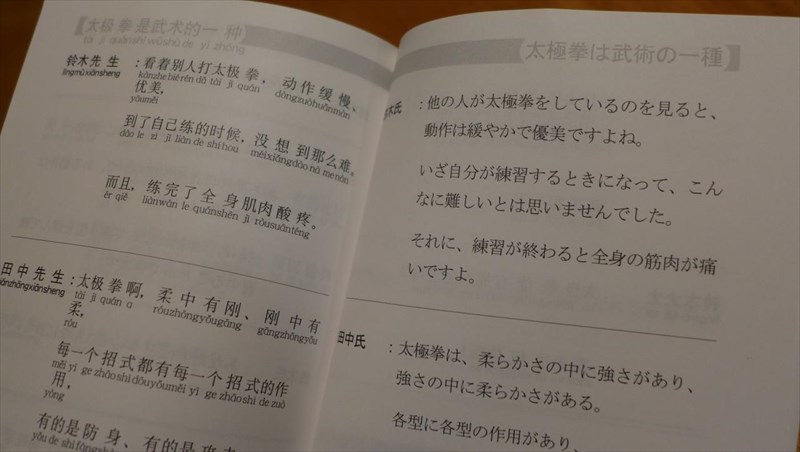 【太极拳是武术的一种】
tài jí quánshì wǔshù de yì zhǒng
铃木先生：看着别人打太极拳，动作缓慢、
língmùxiānsheng kànzhe bié rén dǎ tài jí quán dòngzuòhuǎnmàn
优美，
yōuměi
到了自己练的时候，没想到那么难。
dào le zì jǐ liàn de shí hou méi xiǎngdào nà me nán
而且，练完了全身肌肉酸疼。
ér qiě liànwán le quánshēn jī ròusuānténg
田中先生：太极拳啊，柔中有刚、刚中有
tiánzhōngxiānsheng tài jí quán a róuzhōngyǒugāng gāngzhōngyǒu
柔，
róu
每一个招式都有每一个招式的作
měi yí ge zhāoshì dōuyǒuměi yí ge zhāoshì de zuò
用，
yòng
有的是防身、有的是
yǒu de shì fángshēn yǒu de shì
太極拳は武術の一種】
木氏：他の人が太極拳をしているのを見ると、
動作は緩やかで優美ですよね。
いざ自分が練習するときになって、こん
なに難しいとは思いませんでした。
それに、練習が終わると全身の筋肉が痛
いですよ。
田中氏：太極拳は、柔らかさの中に強さがあり、
強さの中に柔らかさがある。
各型に各型の作用があり、